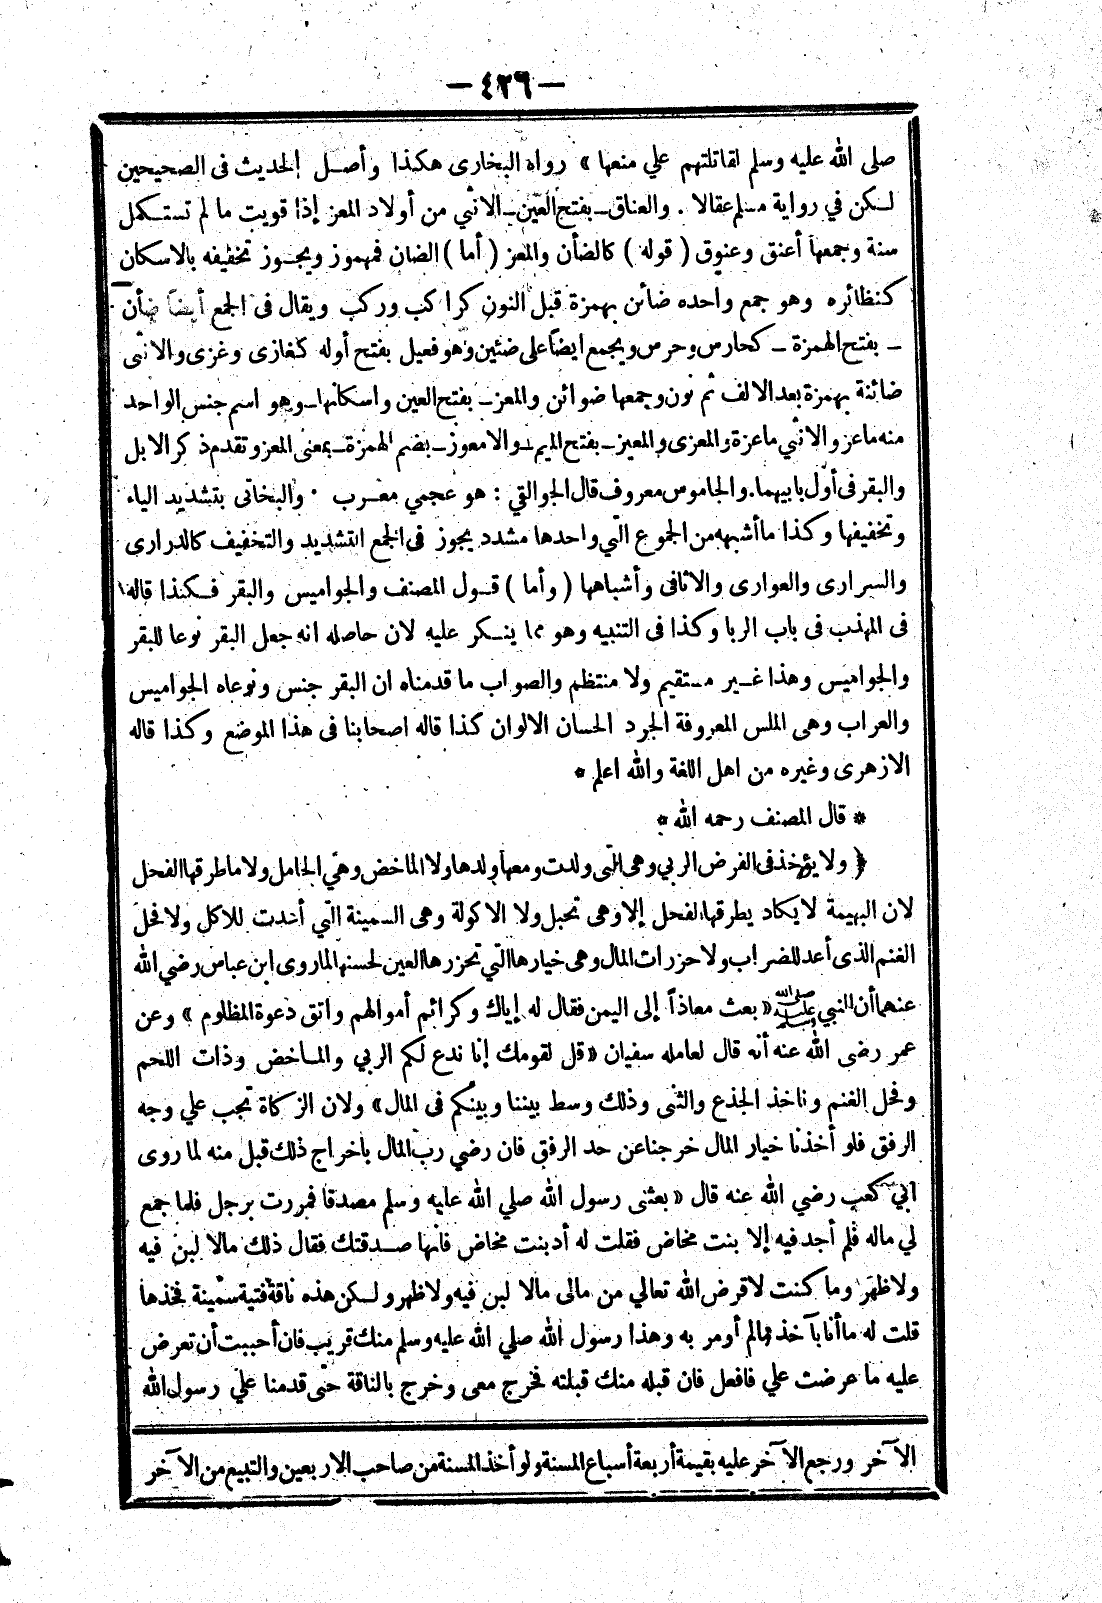 — ٤٢٦ —
صلى الله عليه وسلم لقاتلتهم علي منعها » رواه البخارى هكذا وأصـل الحديث فى الصحيحين
لـكن في رواية مسلم عقالا . والعناق ـ بفتح العين ـ الانثي من أولاد المعز إذا قويت ما لم تستـكمل
سنة وجمعها أعنق وعنوق ( قوله ) كالضأن والمعز ( أما ) الضان فمهموز ويجـوز تخفيفه بالاسكان
كنظائره وهو جمع واحده ضائن بهمزة قبل النون كراكب وركب ويقال فى الجمع أيضاً ضأن
ـ بفتح الهمزة ـ كحارس وحرس ويجمع ايضاً على ضئين وهو فعيل بفتح أوله كغازى وغزى والانثى
ضائنة بهمزة بعد الالف ثم نون وجمعها ضوائن والمعز ـ بفتح العين واسكانها ـ وهو اسم جنس الواحد
منه ماعز والانثي ماعزة والمعزى والمعيز ـ بفتح الميم ـ والامعوز ـ بضم الهمزة ـ بمعنى المعز وتقدم ذكر الابل
والبقر فى أول بابيهما . والجاموس معروف قال الجوالقي : هو عجمي معـرب . والبخاتى بتشديد الياء
وتخفيفها وكذا ما أشبهه من الجموع التي واحدها مشدد يجوز فى الجمع التشديد والتخفيف كالدرارى
والسرارى والعوارى والاثافى وأشباهها ( وأما ) قـول المصنف والجواميس والبقر فـكذا قاله
فى المهذب فى باب الربا وكذا فى التنبيه وهو مما ينـكر عليه لان حاصله انه جعل البقر نوعا للبقر
والجواميس وهذا غـير مستقيم ولا منتظم والصواب ما قدمناه ان البقر جنس ونوعاه الجواميس
والعراب وهى الملس المعروفة الجرد الحسان الالوان كذا قاله اصحابنا فى هذا الموضع وكذا قاله
الازهرى وغيره من اهل اللغة والله اعلم *
* قال المصنف رحمه الله *
﴿ ولا يؤخذ فى الفرض الربي وهى التى ولدت ومعها ولدها ولا الماخض وهي الحامل ولا ما طرقها الفحل
لان البهيمة لا يكاد يطرقها الفحل إلا وهى تحبل ولا الاكولة وهى السمينة التي أعدت للاكل ولا فحل
الغنم الذى أعد للضراب ولا حزرات المال وهى خيارها التي تحزرها العين لحسنها لما روى ابن عباس رضي الله
عنهما أن النبي صلى الله عليه وسلم « بعث معاذاً إلى اليمن فقال له إياك وكرائم أموالهم واتق دعوة المظلوم » وعن
عمر رضى الله عنه أنه قال لعامله سفيان « قل لقومك إنا ندع لكم الربي والمـاخض وذات اللحم
وفحل الغنم وناخذ الجذع والثنى وذلك وسط بيننا وبينكم فى المال » ولان الزكاة تجب علي وجه
الرفق فلو أخذنا خيار المال خرجنا عن حد الرفق فان رضي رب المال باخراج ذلك قبل منه لما روى
ابي كعب رضي الله عنه قال « بعثنى رسول الله صلي الله عليه وسلم مصدقا فمررت برجل فلما جمع
لي ماله فلم أجد فيه إلا بنت مخاض فقلت له أد بنت مخاض فانها صـدقتك فقال ذلك مالا لبن فيه
ولا ظهر وما كنت لاقرض الله تعالي من مالى مالا لبن فيه ولا ظهر ولـكن هذه ناقة فتية سمينة فخذها
قلت له ما أنا بآخذ مالم أومر به وهذا رسول الله صلي الله عليه وسلم منك قريب فان أحببت أن تعرض
عليه ما عرضت علي فافعل فان قبله منك قبلته فخرج معى وخرج بالناقة حتى قدمنا علي رسول الله
الآخر ورجع الآخر عليه بقيمة أربعة أسباع المسنة ولو أخذ المسنة من صاحب الاربعين والتبيع من الآخر